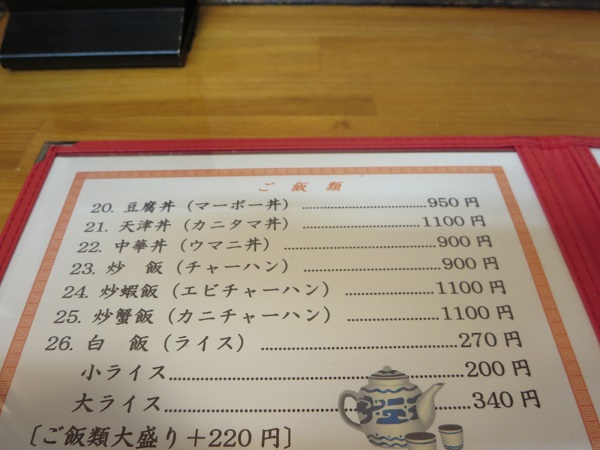 ご飯類
20. 豆腐丼（マーボー丼） ........................ 950 円
21. 天津丼（カニタマ丼） ........................ 1100 円
22. 中華丼（ウマニ丼） ........................ 900 円
23. 炒　飯（チャーハン） ........................ 900 円
24. 炒蝦飯（エビチャーハン） ................ 1100 円
25. 炒蟹飯（カニチャーハン） ................ 1100 円
26. 白　飯（ライス） ........................ 270 円
小ライス ........................ 200 円
大ライス ........................ 340 円
〔ご飯類大盛り＋220 円〕